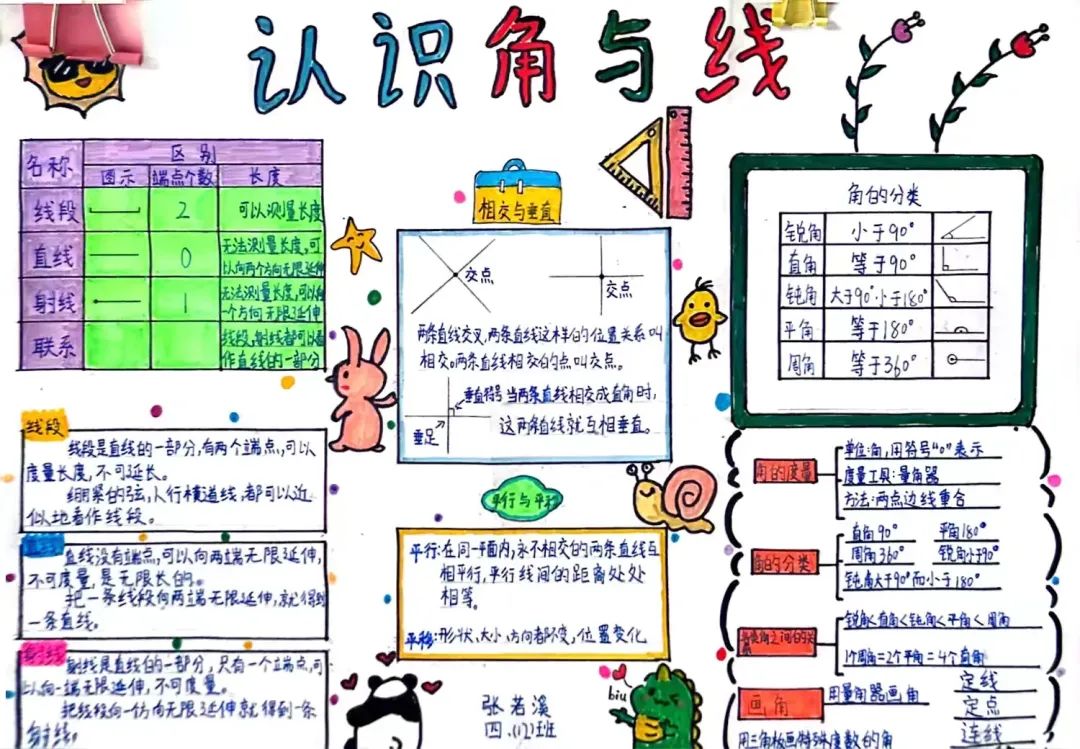 认识角与线
名称 区别
图示 端点个数 长度
线段 2 可以测量长度
直线 0 无法测量长度,可
以向两个方向无限延伸
射线 1 无法测量长度,可以向
一个方向无限延伸
联系 线段,射线都可以看
作直线的一部分
线段
线段是直线的一部分,有两个端点,可以
度量长度,不可延长。
绷紧的弦,人行横道线,都可以近
似地看作线段。
直线
直线没有端点,可以向两端无限延伸,
不可度量,是无限长的。
把一条线段向两端无限延伸,就得到
一条直线。
射线
射线是直线的一部分,只有一个端点,可
以向一端无限延伸,不可度量。
把线段向一方向无限延伸就得到一条
射线。
相交与垂直
交点
交点
两条直线交叉,两条直线这样的位置关系叫
相交。两条直线相交的点叫交点。
垂直符号
垂足
当两条直线相交成直角时,
这两条直线就互相垂直。
平行与平移
平行:在同一平面内,永不相交的两条直线互
相平行,平行线间的距离处处
相等。
平移:形状、大小、方向都不变,位置变化
张若溪
四.(12)班
biu
角的分类
锐角 小于90°
直角 等于90°
钝角 大于90°小于180°
平角 等于180°
周角 等于360°
角的度量
单位:角,用符号“0”表示
度量工具:量角器
方法:两点边线重合
角的分类
直角90° 平角180°
周角360° 锐角小于90°
钝角大于90°而小于180°
角之间的关
锐角<直角<钝角<平角<周角
1个周角=2个平角=4个直角
画角
用量角器画角
定线
定点
连线
用三角板画特殊度数的角